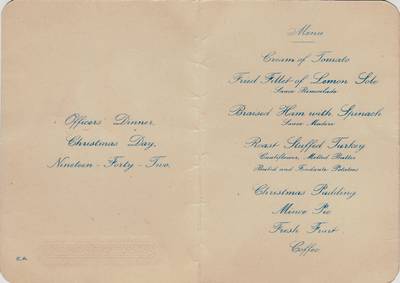 Officers' Dinner.
Christmas Day,
Nineteen - Forty - Two.
Menu
Cream of Tomato
Fried Fillet of Lemon Sole
Sauce Remoulade
Braised Ham with Spinach
Sauce Madère
Roast Stuffed Turkey
Cauliflower, Melted Butter
and Fondante Potatoes
Christmas Pudding
Mince Pie
Fresh Fruit
Coffee